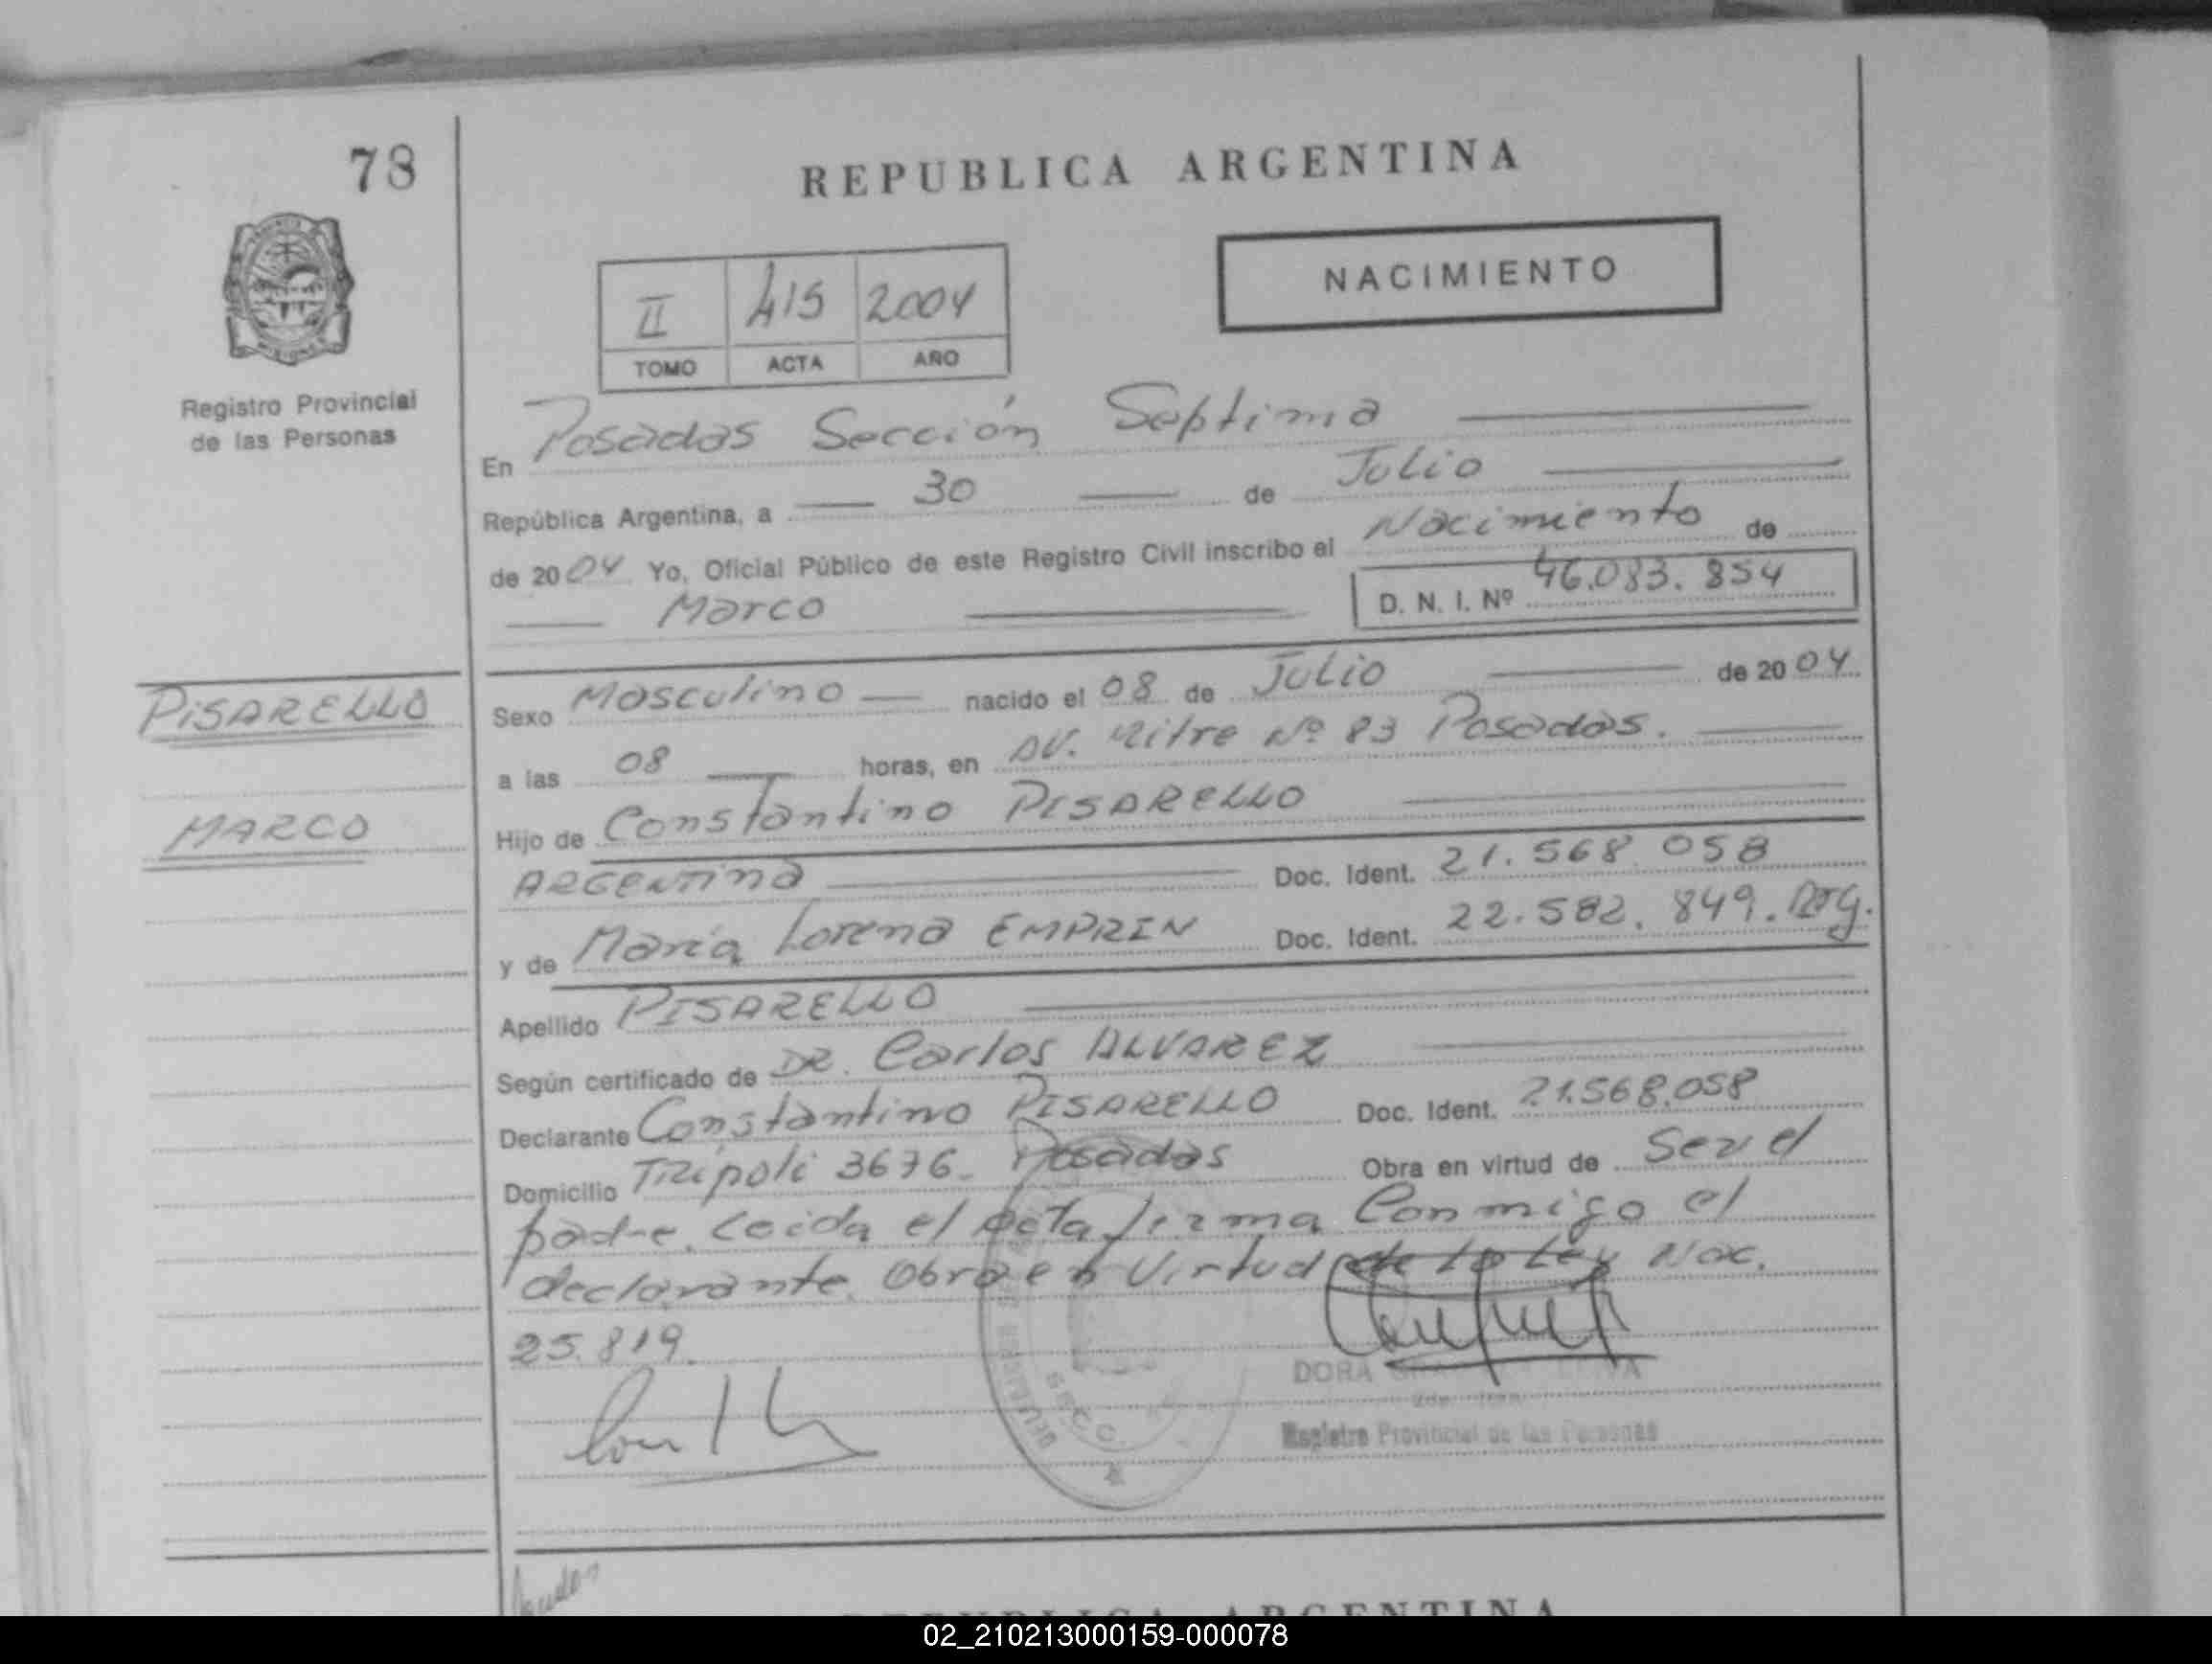 78
REPUBLICA ARGENTINA
NACIMIENTO
II 415 2004
TOMO ACTA AÑO
Registro Provincial
de las Personas
En Posadas Sección Septima
República Argentina, a 30 de Julio
de 2004 Yo, Oficial Público de este Registro Civil inscribo el Nacimiento de
Marco D. N. I. Nº 46.083.854
PISARELLO
MARCO
Sexo Masculino nacido el 08 de Julio de 2004
a las 08 horas, en AV. Mitre Nº 83 Posadas.
Hijo de Constantino PISARELLO
ARGENTINA Doc. Ident. 21.568.058
y de María Lorena EMPRIN Doc. Ident. 22.582.849. Arg.
Apellido PISARELLO
Según certificado de DR. Carlos ALVAREZ
Declarante Constantino PISARELLO Doc. Ident. 21.568.058
Domicilio Tripoli 3676. Posadas Obra en virtud de Ser el
padre. Leida el Acta firma Conmigo el
declarante. Obra en Virtud de la Ley Nac.
25.819.
DORA
Registro Provincial de las Personas
REPUBLICA ARGENTINA
02_210213000159-000078